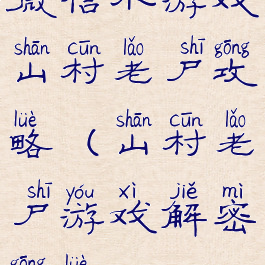 微信小游戏
shān cūn lǎo shī gōng
山村老尸攻
lüè shān cūn lǎo
略（山村老
shī yóu xì jiě mì
尸游戏解密
gōng lüè